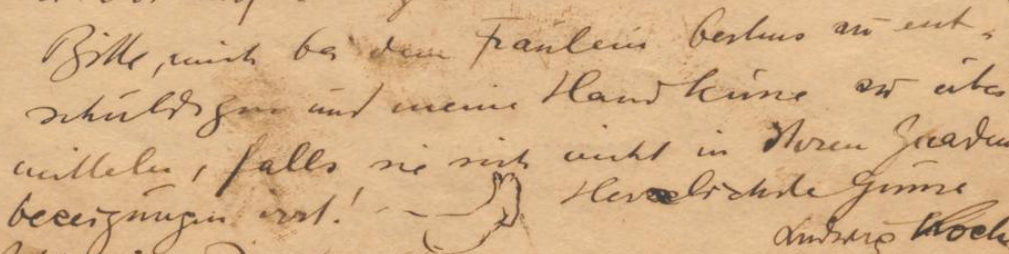 Bitte, mich bei dem Fräulein bestens zu ent-
schuldigen und meine Handküsse zu über
mitteln, falls sie sich nicht in Ihren Gnaden
bezeigungen irrt! Herzlichste Grüsse
Ludwig Koch